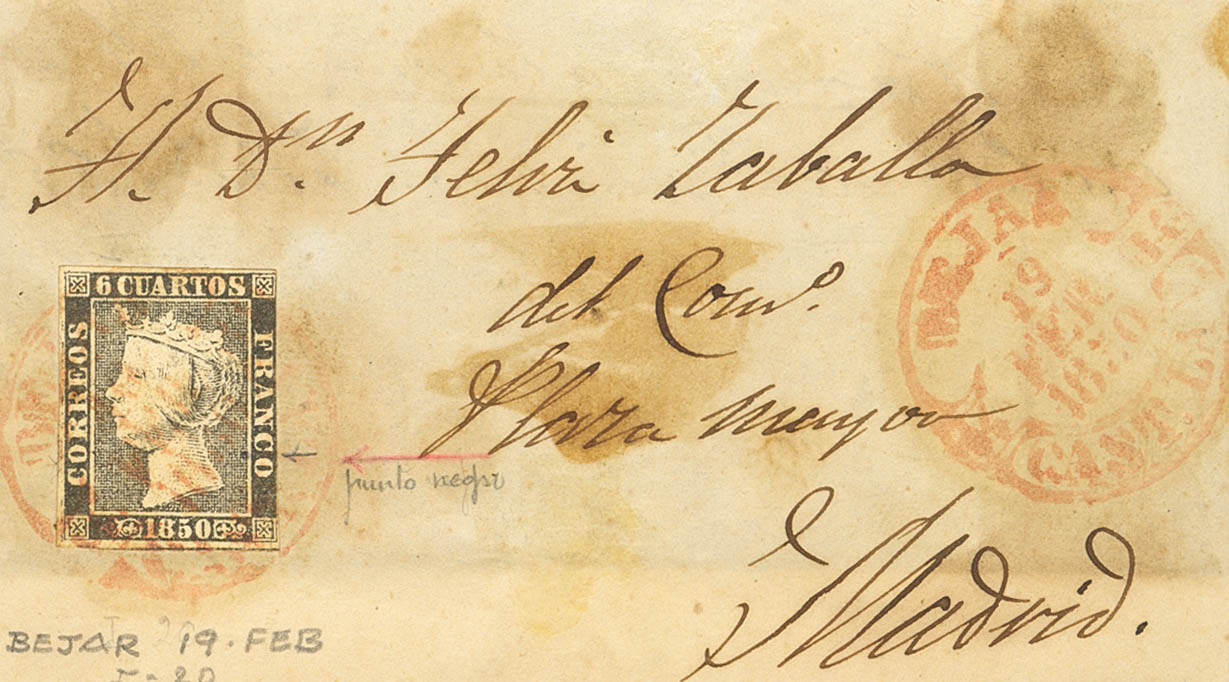 Dn. Felix Zaballa
del Comº.
Plaza mayor
Madrid.
6 CUARTOS
CORREOS
FRANCO
1850
BEJAR
19
FEB
1850
CAST. LA
punto negro
BEJAR 19. FEB